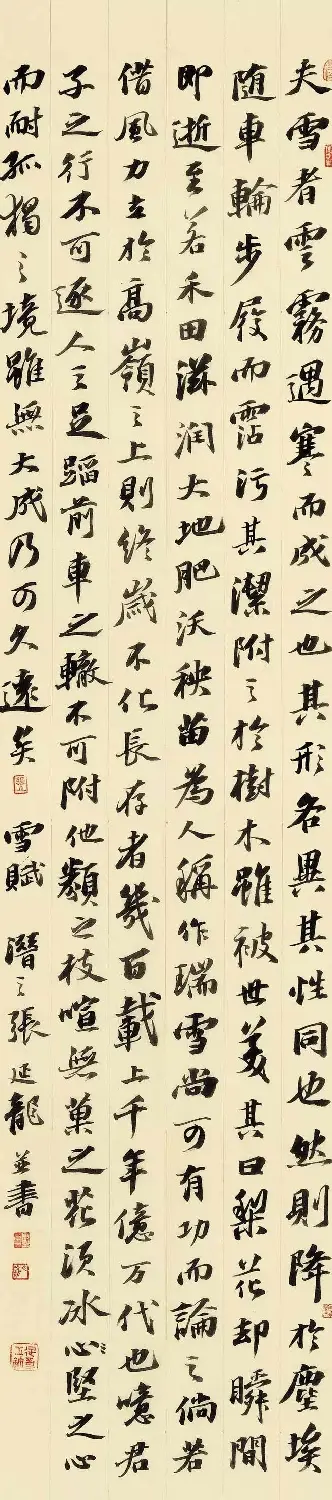 夫雪者雲霧遇寒而成之也其形各異其性同也然則降於塵埃
随車輪步履而霑污其潔附之於樹木雖被世美其曰梨花却瞬間
即逝至若禾田滋润大地肥沃秧苗為人稱作瑞雪尚可有功而論之倘若
借風力立於高嶺之上則終歲不化長存者幾百載上千年億万代也噫君
子之行不可逐人之足蹈前車之轍不可附他類之枝喧無菓之花须冰心堅之心
而耐孤獨之境雖無大成乃可久遠矣 雪賦 潛之張延龍並書